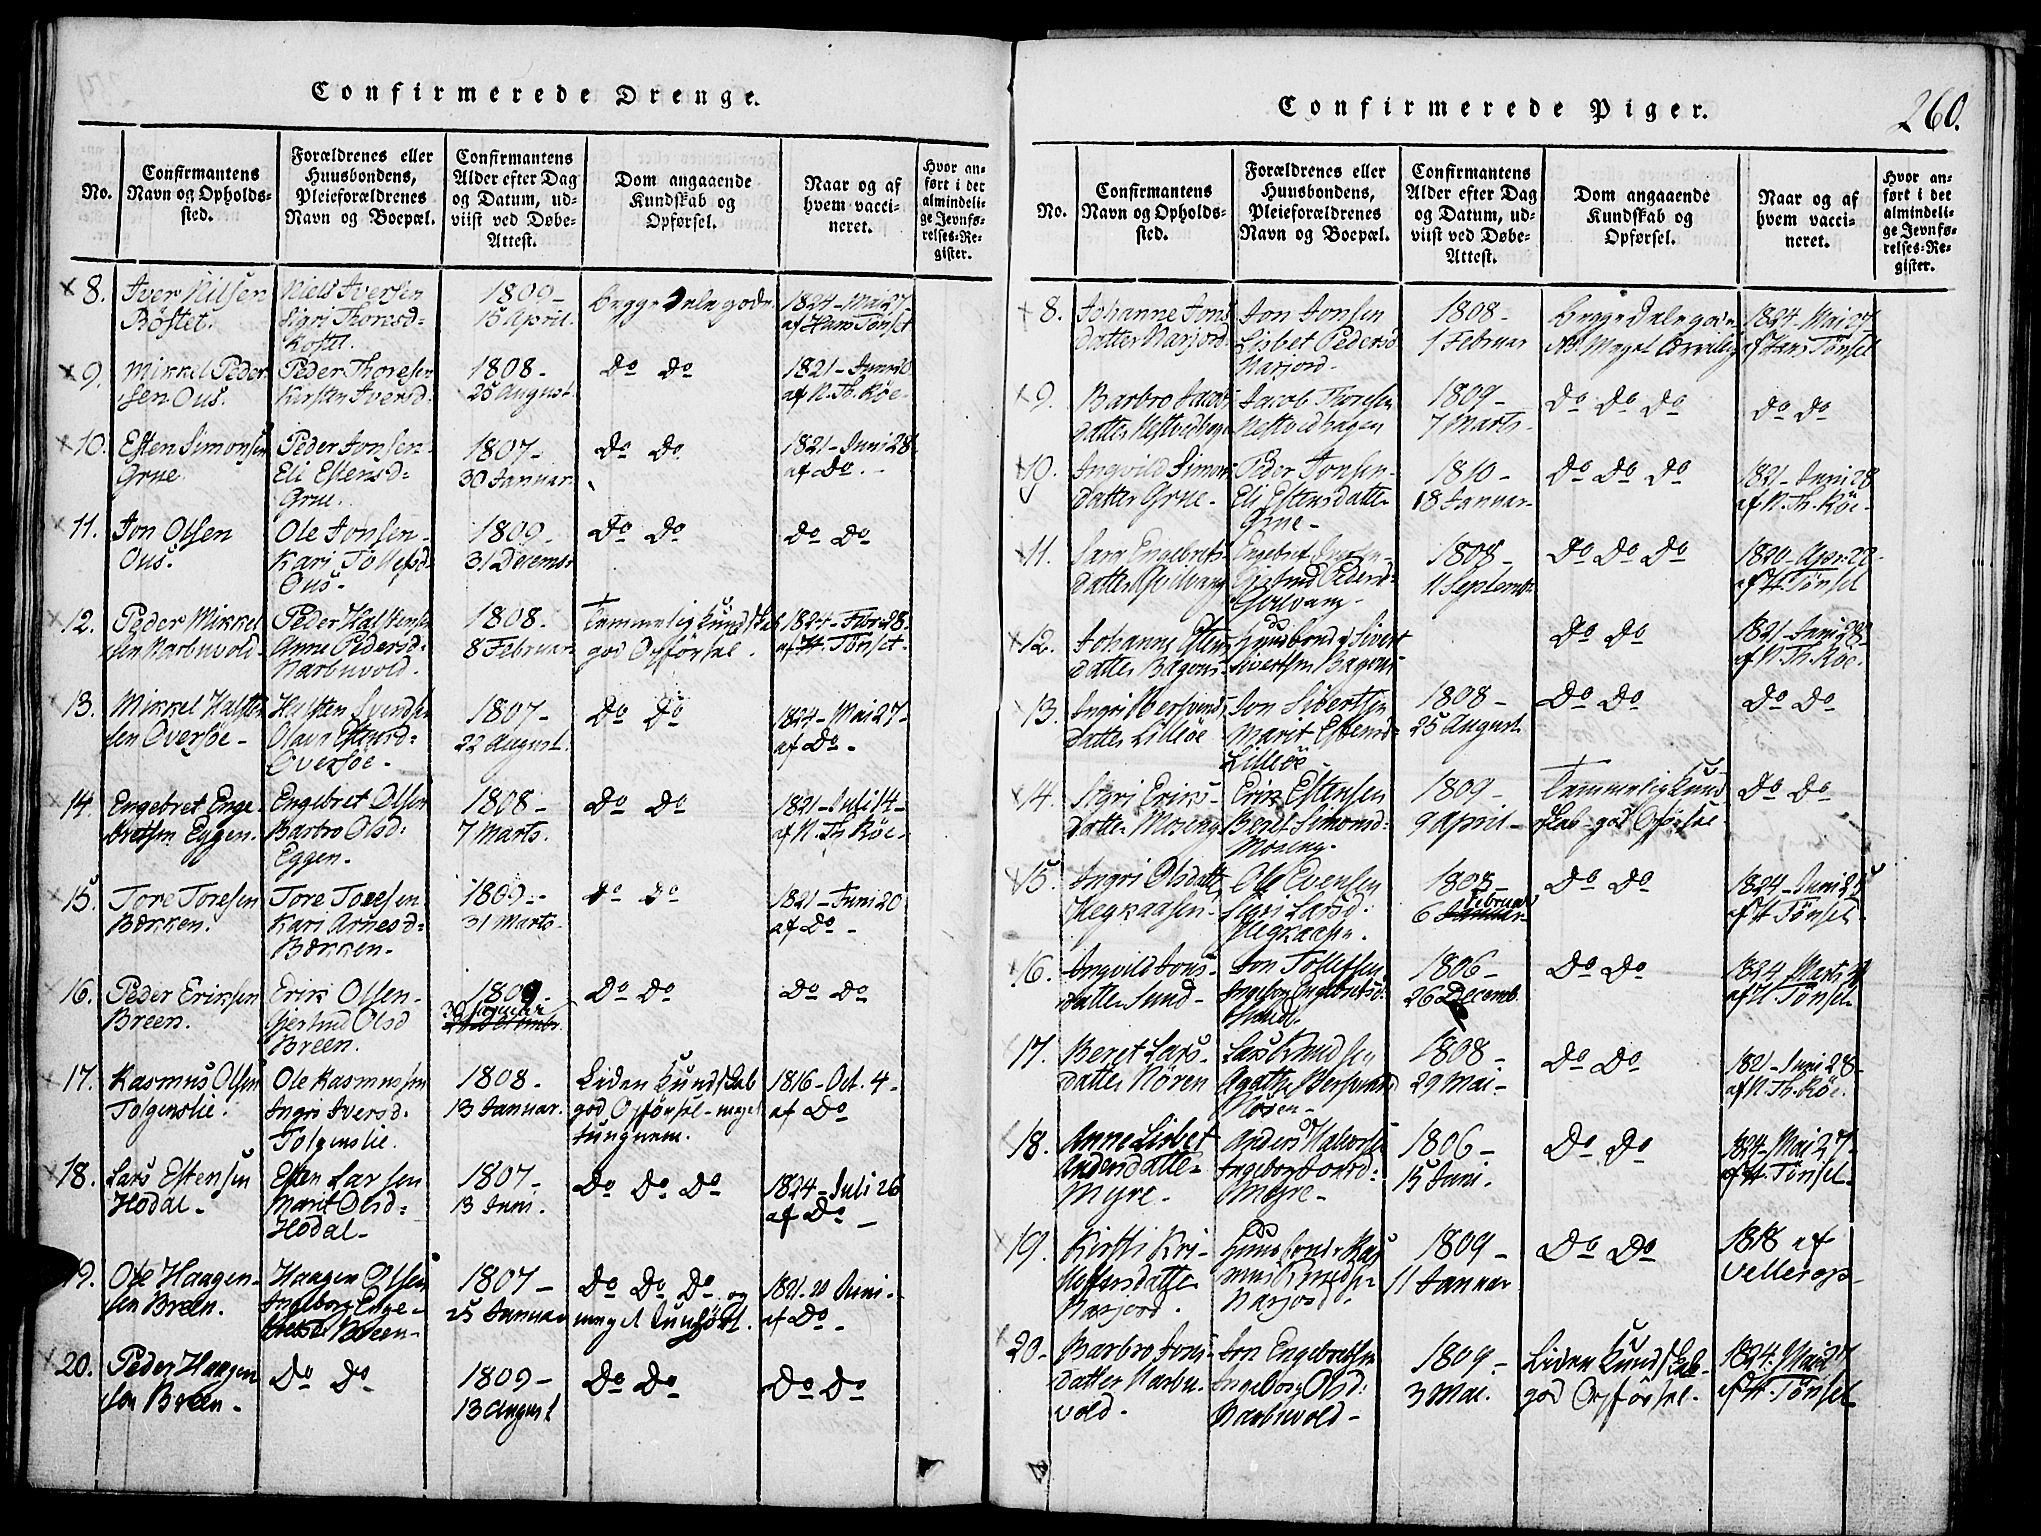 Confirmerede Drenge.
No.
Confirmantens
Navn og Opholds-
sted.
Forældrenes eller
Huusbondens,
Pleieforældrenes
Navn og Boepæl.
Confirmantens
Alder efter Dag
og Datum, ud-
viist ved Døbe-
Attest.
Dom angaaende
Kundskab og
Opførsel.
Naar og af
hvem vacci-
neret.
Hvor an-
ført i det
almindeli-
ge Jevnfø-
relses-Re-
gister.
8.
Iver Nilsen
Röstet.
Niels Iversen
Sigri Thoresd:
1809-
15 April.
begge dele gode.
1824-Mai 27
af Hans Tönset
9.
Mikkel Peder
sen Ous.
Peder Thoresen
Kirsten Iversd:
1808-
25 August.
Do Do
1821-Juni 20
af N. Th. Röe-
10.
Esten Simonsen
Grue.
Peder Jonsen-
Eli Estensd:
Grue.
1807-
30 Januar.
Do Do
1821-Juni 28.
af Do.-
11.
Jon Olsen
Ous.
Ole Jonsen-
Kari Tollefsd:
Ous-
1809-
31 Decemb:
Do Do
Do Do
12.
Peder Mikkel
sen Narbuvold-
Peder Halstensen
Anne Pedersd:
Narbuvold.
1808.
8 Februar
Temmelig Kundskab
god Opförsel.
1824-Febr 28.
af H. Tönset.
13.
Mikkel Halsten
sen Oversöe-
Halsten Svendsen
Oversöe-
1807-
22 August.
Do Do
1824-Mai 27-
af Do-
14.
Engebret Enge-
bretsen Eggen.
Engebret Olsen
Barbro Olsd:
Eggen-
1808-
7 Marts.
Do Do
1821-Juli 14-
af N. Th Röe-
15.
Tore Toresen
Bækken.
Tore Toresen
Kari Arnesd:
Bækken-
1809.-
31 Marts-
Do Do
1821-Juni 20
af Do-
16.
Peder Eriksen
Breen.
Erik Olsen-
Gjertrud Olsd
Breen.
1809-
30 Januar
Do Do
Do Do
17.
Rasmus Olsen
Tolgenslie.
Ole Rasmussen
Ingri Iversd:
Tolgenslie.
1808-
13 Januar.
Liden Kundskab
god Opförsel-meget
tungnem.
1816-Oct. 4-
af Do
18.
Lars Estensen
Hodal-
Esten Larsen
Marit Olsd:
Hodal-
1807-
13 Juni.
Do Do Do
1824-Juli 26
af Do-
19.
Ole Haagen-
sen Breen.
Haagen Olsen
Ingeborg Enge-
bretsd: Breen-
1807-
25 Januar
Do Do Do og
meget
1821. 20 Juni.
af Do-
20.
Peder Haagen
sen Breen-
Do Do
1809-
13 August
Do Do
Do Do
Confirmerede Piger.
260.
No.
Confirmantens
Navn og Opholds-
sted.
Forældrenes eller
Huusbondens,
Pleieforældrenes
Navn og Boepæl.
Confirmantens
Alder efter Dag
og Datum, ud-
viist ved Døbe-
Attest.
Dom angaaende
Kundskab og
Opførsel.
Naar og af
hvem vacci-
neret.
Hvor an-
ført i det
almindeli-
ge Jevnfø-
relses-Re-
gister.
8.
Johanne Jons
datter Narjord-
Jon Jonsen
Lisbet Pedersd
Narjord-
1808-
1 Februar
begge dele gode
1824-Mai 27
af Hans Tönset
9.
Barbro Jacobs
datter
Jacob Thoresen
1809-
7 Marts-
Do Do Do
Do Do
10.
Ingvild Simons
datter Grue-
Peder Jonsen-
Eli Estensdatter
Grue-
1810-
18 Januar-
Do Do Do
1821-Juni 28
af N. Th. Röe-
11.
Sara Engebrets
datter
Gjertrud Pedersd:
1808-
11 Septemb:
Do Do Do
1820-Apr: 22-
af H. Tönset
12.
Johanne Esten
datter
Huusbonde Sivert
Sivertsen
Do Do
1821-Juni 28
af N. Th. Röe.
13.
datter Lillöe
Jon Sivertsen
Marit Estensd:
Lillöe-
1808-
25 August
Do Do
Do Do
14.
Sigri Eriks-
datter Moseng
Erik Estensen
Beret Simonsd:
Moseng-
1809-
9 April-
Temmelig Kund
skab-god Opförsel-
Do Do
15.
Ingri Olsdatter
Ole Evensen
Siri Larsd:
1808-
6 Februar
Do Do
1824-Juni 25
af H Tönset-
16.
Ingvild Jons-
datter Sund-
Jon Tollefsen
Ingebor Engebretsd:
1806-
26 Decemb.
Do Do
1824 Marts
af H. Tönset-
17.
Beret Lars-
datter Nören
Lars Knudsen
Nören-
1808-
29 Mai-
Do Do
1821-Juni 28-
af N. Th. Röe.
18.
Anne Lisbet
Andersdatter-
Myre-
Anders Halvorsen
Ingeborg Jonsd:
Myre-
1806-
15 Juni.
Do Do
1824-Mai 27-
af H. Tönset-
19.
Kirsti Kri-
stoffersdatter
Narjord.
Huusbonde Ras
mus Knudsen
Narjord-
1809-
11 Januar
Do Do
1818 af
Vellerop-
20-
Barbro Jons-
datter Narbu-
vold-
Jon Engebretsen
Ingeborg Olsd:
Narbuvold-
1809-
3 Mai.
Liden Kundskab-
god Opförsel-
1824. Mai 27
af H. Tönset-